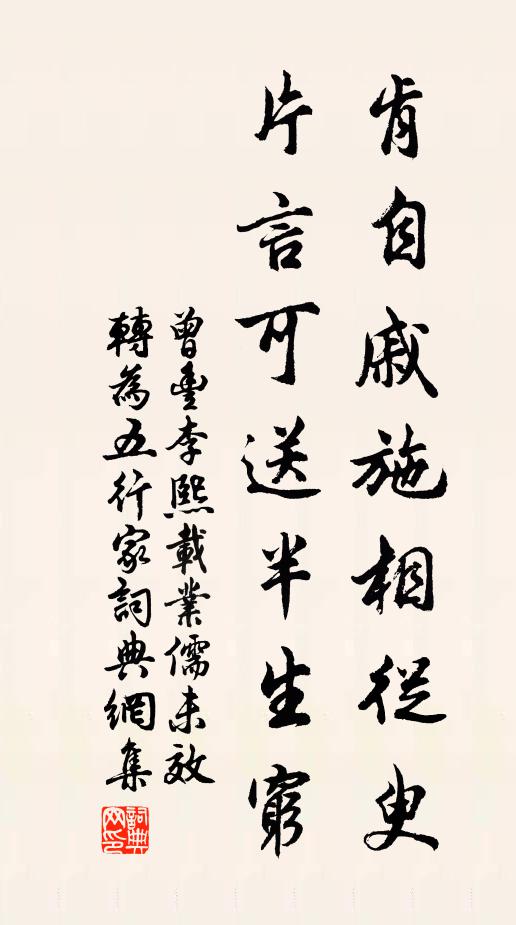 肯自戚施相從臾
片言可送半生窮
曾豐李熙載業儒未效
轉為五行家詞典網集
詞典網印